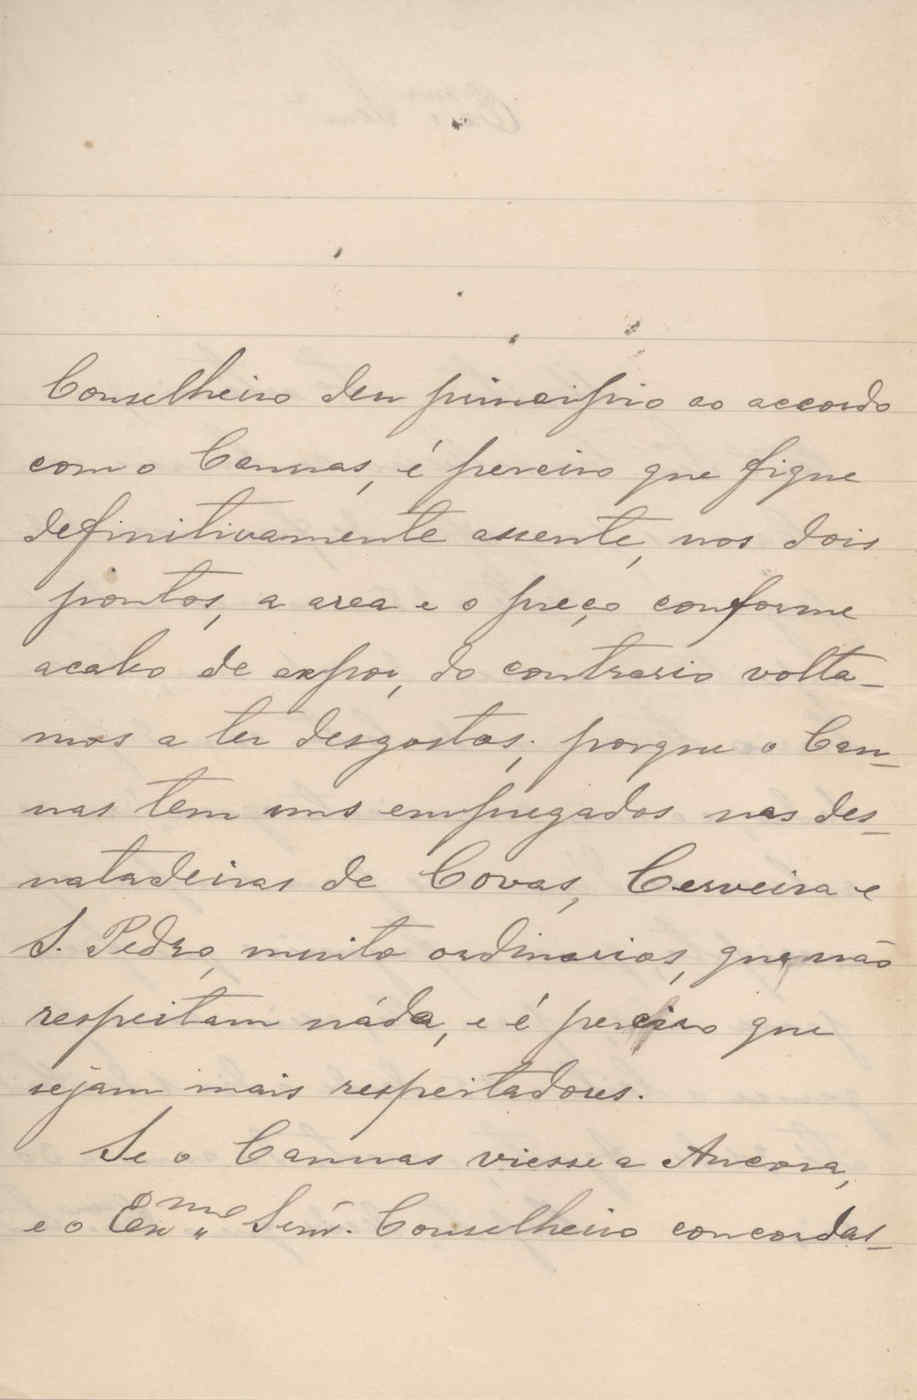 Conselheiro deu principio ao accordo
com o Cannas, é preciso que fique
definitivamente assente, nos dois
pontos, a area e o preço conforme
acabo de expor, do contrario volta-
mos a ter desgostos; porque o Can-
nas tem uns empregados nas des-
natadeiras de Covas, Cerveira e
S. Pedro, muito ordinarios, que não
respeitam náda, e é preciso que
sejam mais respeitadores.
Se o Cannas viesse a Ancora,
e o Exmo Senr. Conselheiro concordas-